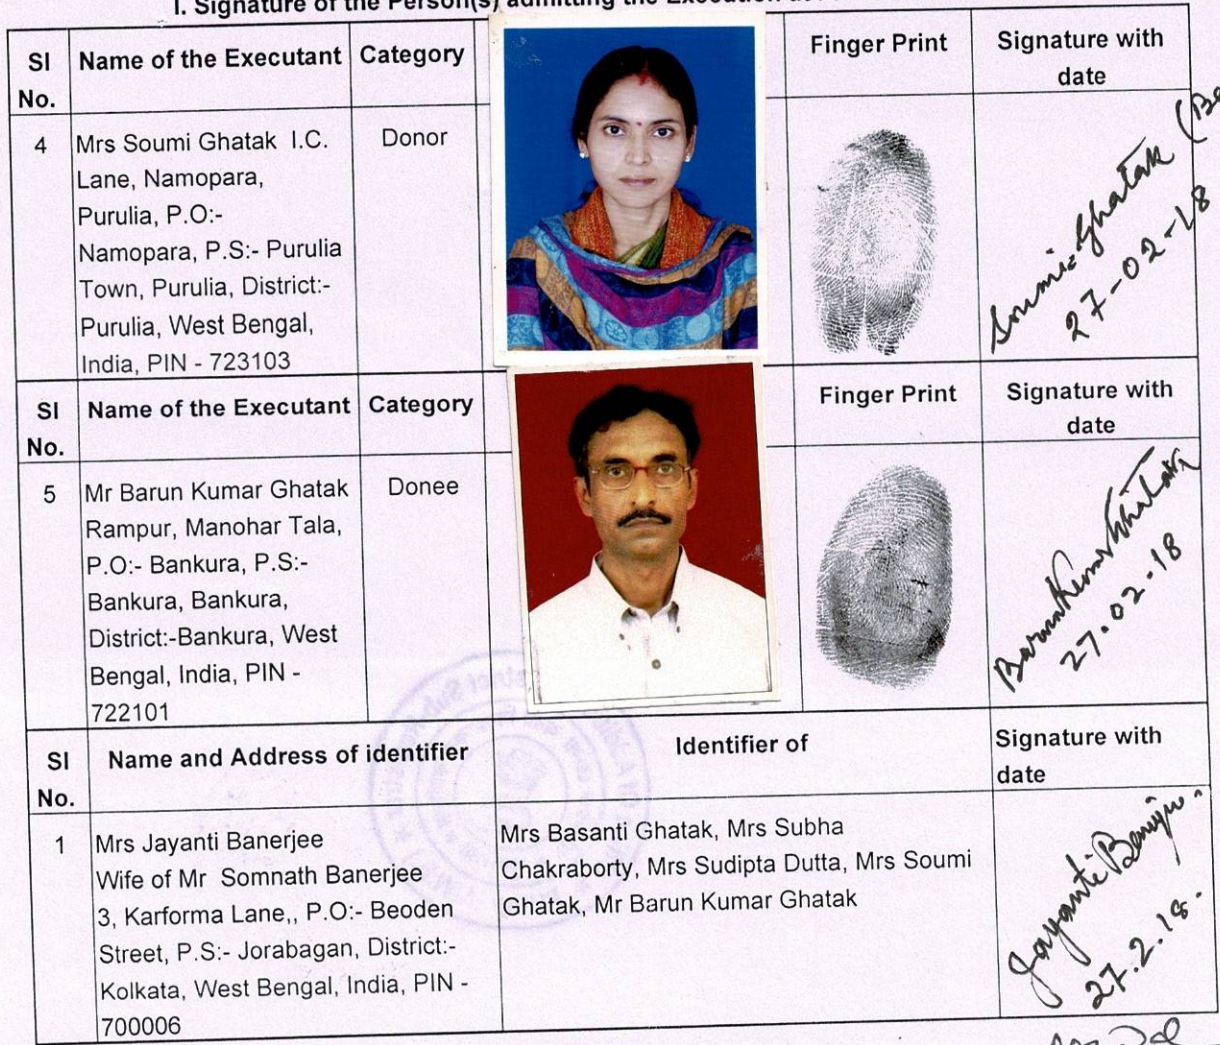 I. Signature of the Person(s) admitting the Execution
Sl No. Name of the Executant Category Finger Print Signature with date
4 Mrs Soumi Ghatak I.C. Donor
Lane, Namopara,
Purulia, P.O:-
Namopara, P.S:- Purulia
Town, Purulia, District:-
Purulia, West Bengal,
India, PIN - 723103
Soumi Ghatak
27-02-18
Sl No. Name of the Executant Category Finger Print Signature with date
5 Mr Barun Kumar Ghatak Donee
Rampur, Manohar Tala,
P.O:- Bankura, P.S:-
Bankura, Bankura,
District:-Bankura, West
Bengal, India, PIN -
722101
Barun Kumar Ghatak
27.02.18
Sl No. Name and Address of identifier Identifier of Signature with date
1 Mrs Jayanti Banerjee
Wife of Mr Somnath Banerjee
3, Karforma Lane,, P.O:- Beoden
Street, P.S:- Jorabagan, District:-
Kolkata, West Bengal, India, PIN -
700006
Mrs Basanti Ghatak, Mrs Subha
Chakraborty, Mrs Sudipta Dutta, Mrs Soumi
Ghatak, Mr Barun Kumar Ghatak
Jayanti Banerjee.
27.2.18.